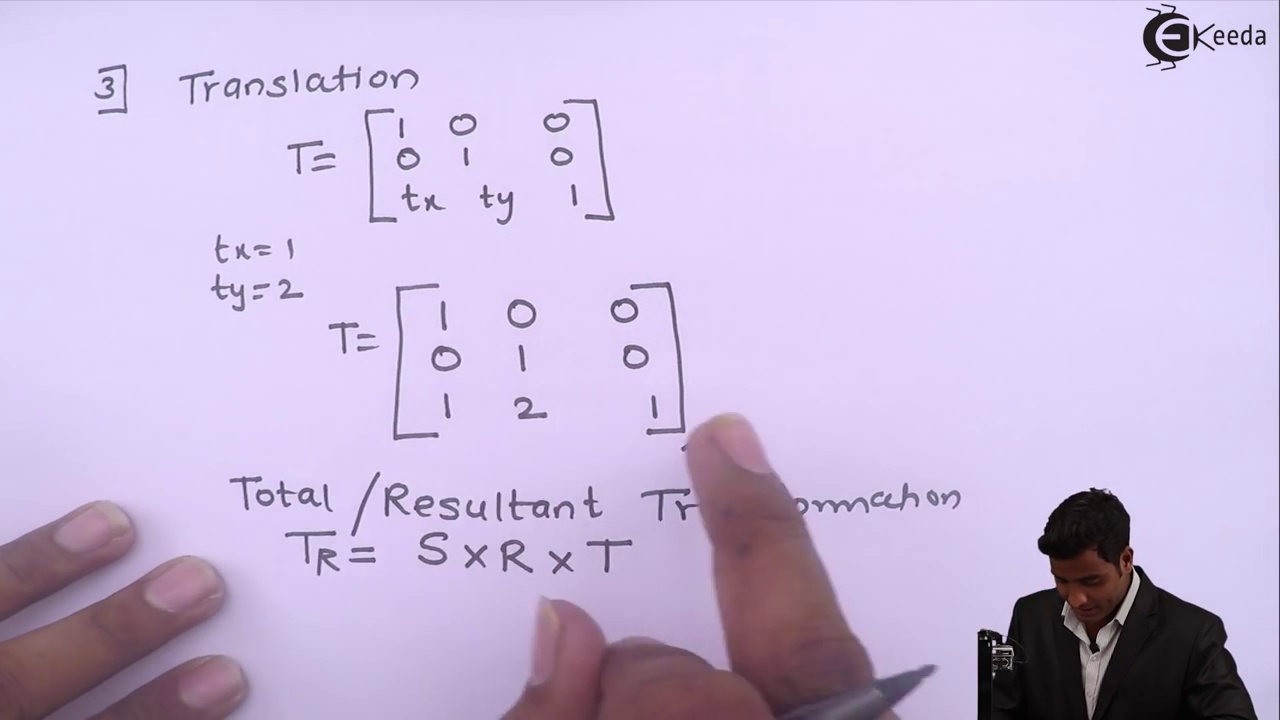 EKeeda
3] Translation
T= [ 1 0 0
0 1 0
tx ty 1 ]
tx = 1
ty = 2
T= [ 1 0 0
0 1 0
1 2 1 ]
Total / Resultant
TR = S x R x T